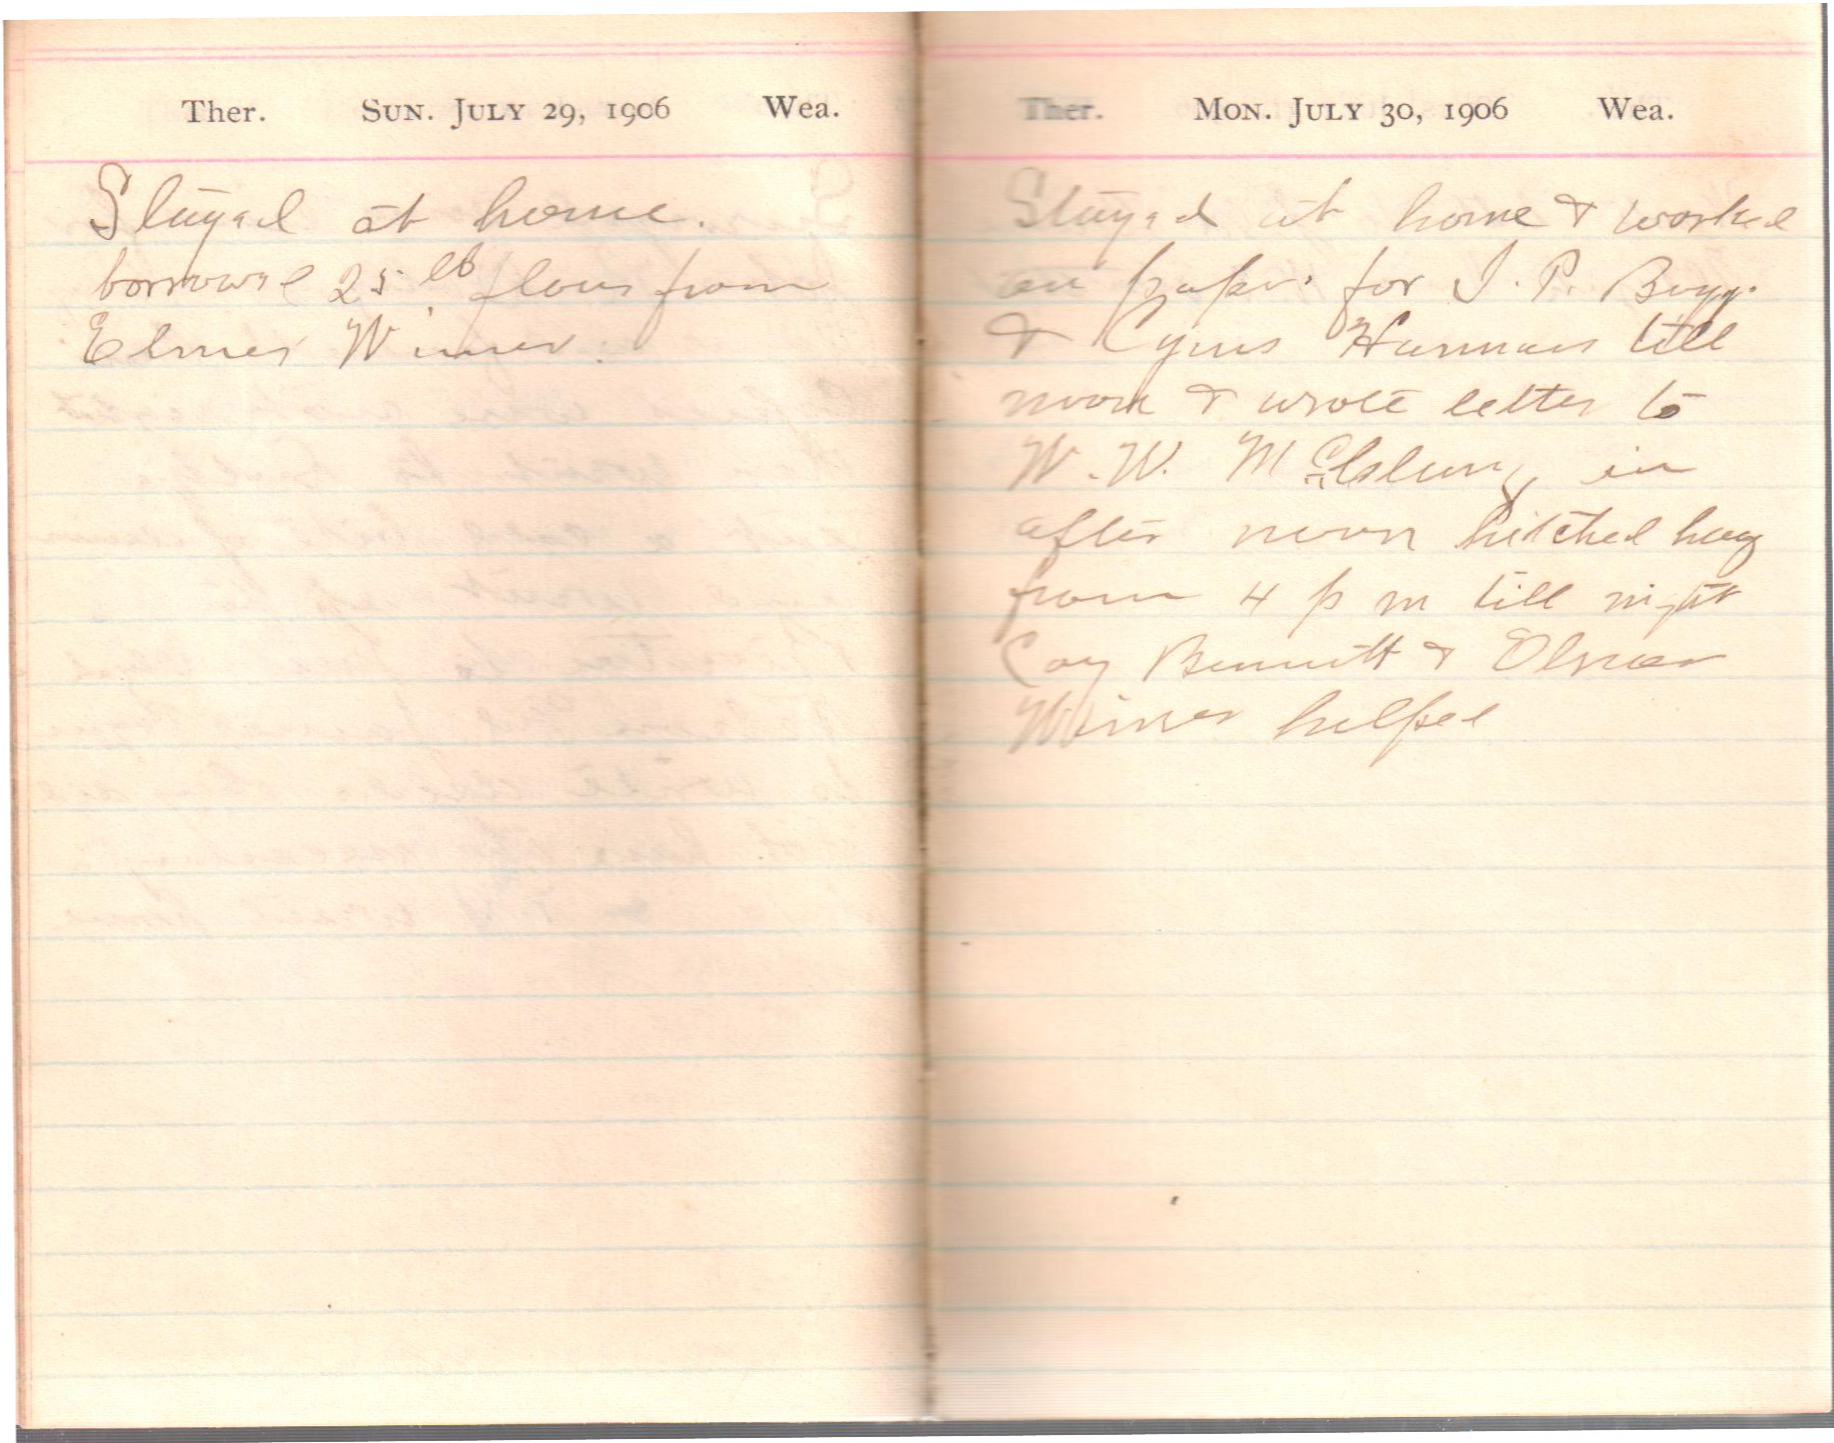 Ther. Sun. July 29, 1906 Wea.
Stayed at home.
borrowed 25 lb flour from
Elmer Winer.
Ther. Mon. July 30, 1906 Wea.
Stayed at home & worked
on papers for I. P. Bogg.
& Cyrus Harman till
noon & wrote letter to
W. W. McClung in
after noon hitched hay
from 4 p m till night
Coy Bennett & Elmer
Winer helped